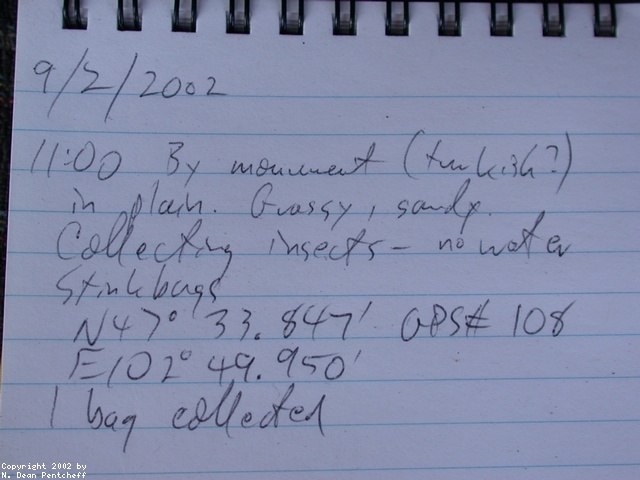 9/2/2002
11:00 By monument (turkish?)
in plain. Grassy, sandy.
Collecting insects - no water
Stinkbugs
N47° 33.847' GPS# 108
E102° 49.950'
1 bag collected
Copyright 2002 by
N. Dean Pentcheff